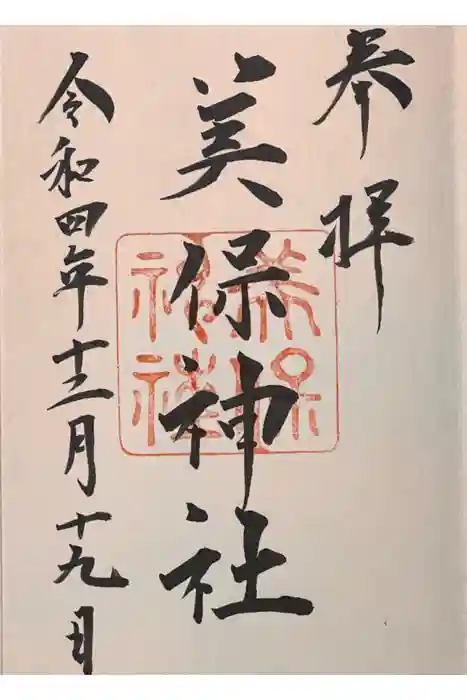 奉拝
美保神社
令和四年十二月十九日
美保
神社